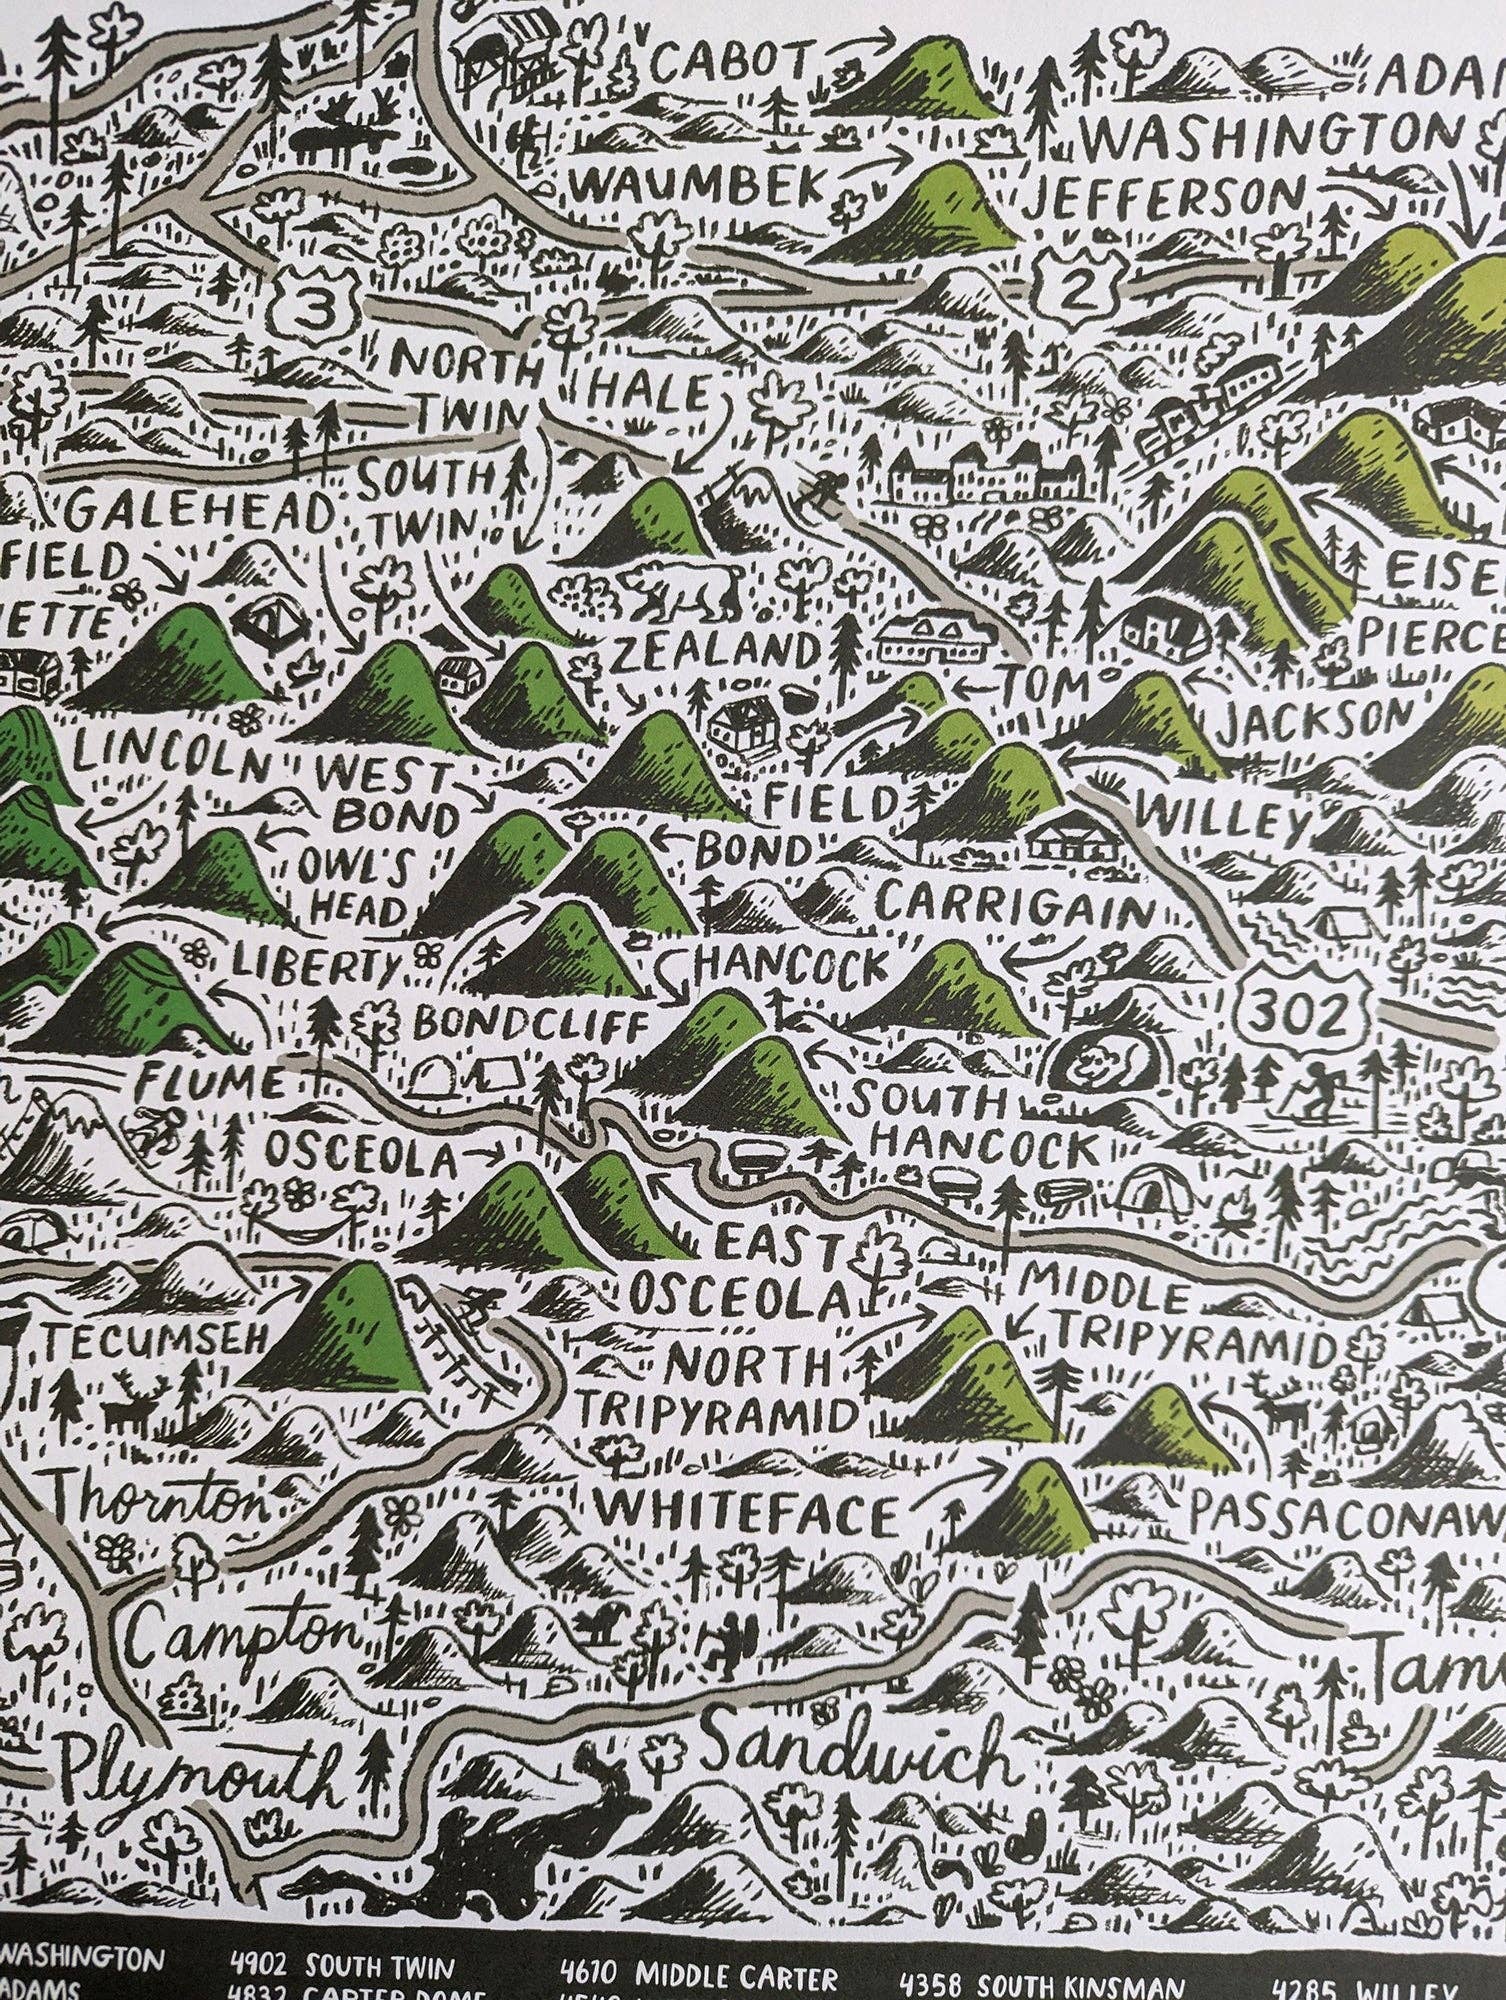 CABOT
WASHINGTON
WAUMBEK
JEFFERSON
3
2
NORTH
TWIN
HALE
SOUTH
TWIN
GALEHEAD
ZEALAND
TOM
PIERCE
JACKSON
LINCOLN
WEST
BOND
FIELD
WILLEY
OWL'S
HEAD
BOND
CARRIGAIN
LIBERTY
HANCOCK
302
BONDCLIFF
FLUME
SOUTH
HANCOCK
OSCEOLA
EAST
OSCEOLA
MIDDLE
TRIPYRAMID
TECUMSEH
NORTH
TRIPYRAMID
Thornton
WHITEFACE
Campton
Plymouth
Sandwich
WASHINGTON
4902 SOUTH TWIN
4610 MIDDLE CARTER
4358 SOUTH KINSMAN
4285 WILLEY
ADAMS
4832 CARTER DOME